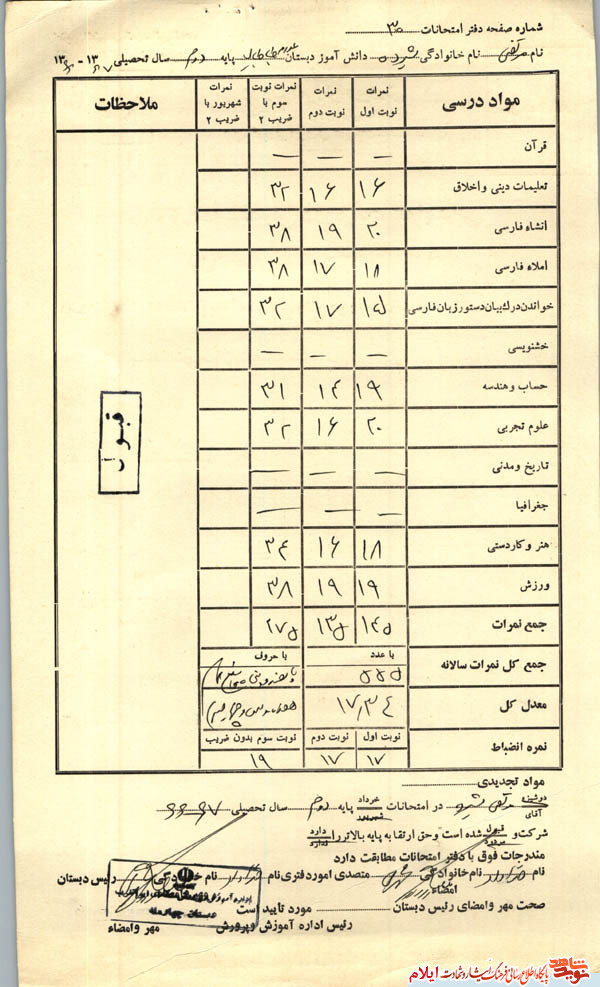 شماره صفحه دفتر امتحانات ۳۰
نام مرتضی نام خانوادگی دانش آموز دبستان پایه دوم سال تحصیلی ۱۳۶۷ - ۱۳۶۶
مواد درسی نمرات نوبت اول نمرات نوبت دوم نمرات نوبت سوم با ضریب ۲ نمرات شهریور با ضریب ۲ ملاحظات
قرآن — — —
تعلیمات دینی و اخلاق ۱۶ ۱۶ ۳۲
انشاء فارسی ۲۰ ۱۹ ۳۸
املاء فارسی ۱۸ ۱۷ ۳۸
خواندن درک بیان دستور زبان فارسی ۱۵ ۱۷ ۳۲
خشنویسی — — —
حساب و هندسه ۱۹ ۱۴ ۳۱
علوم تجربی ۲۰ ۱۶ ۳۲
تاریخ و مدنی — — —
جغرافیا — — —
هنر و کاردستی ۱۸ ۱۶ ۳۴
ورزش ۱۹ ۱۹ ۳۸
جمع نمرات ۱۴۵ ۱۳۵ ۲۷۵
جمع کل نمرات سالانه با عدد ۵۵۵ با حروف
معدل کل ۱۷,۳۴
نمره انضباط نوبت اول ۱۷ نوبت دوم ۱۷ نوبت سوم بدون ضریب ۱۹
قبول
مواد تجدیدی
دوشیزه آقای مرتضی در امتحانات خرداد شهریور پایه دوم سال تحصیلی ۶۷-۶۶
شرکت و قبول مردود شده است و حق ارتقا به پایه بالاتر را دارد ندارد
مندرجات فوق با دفتر امتحانات مطابقت دارد
نام نام خانوادگی متصدی امور دفتری نام نام خانوادگی رئیس دبستان
امضاء
صحت مهر و امضای رئیس دبستان مورد تأیید است
رئیس اداره آموزش و پرورش مهر و امضاء
نوید شاهد
پایگاه اطلاع رسانی فرهنگ ایثار و شهادت ایلام